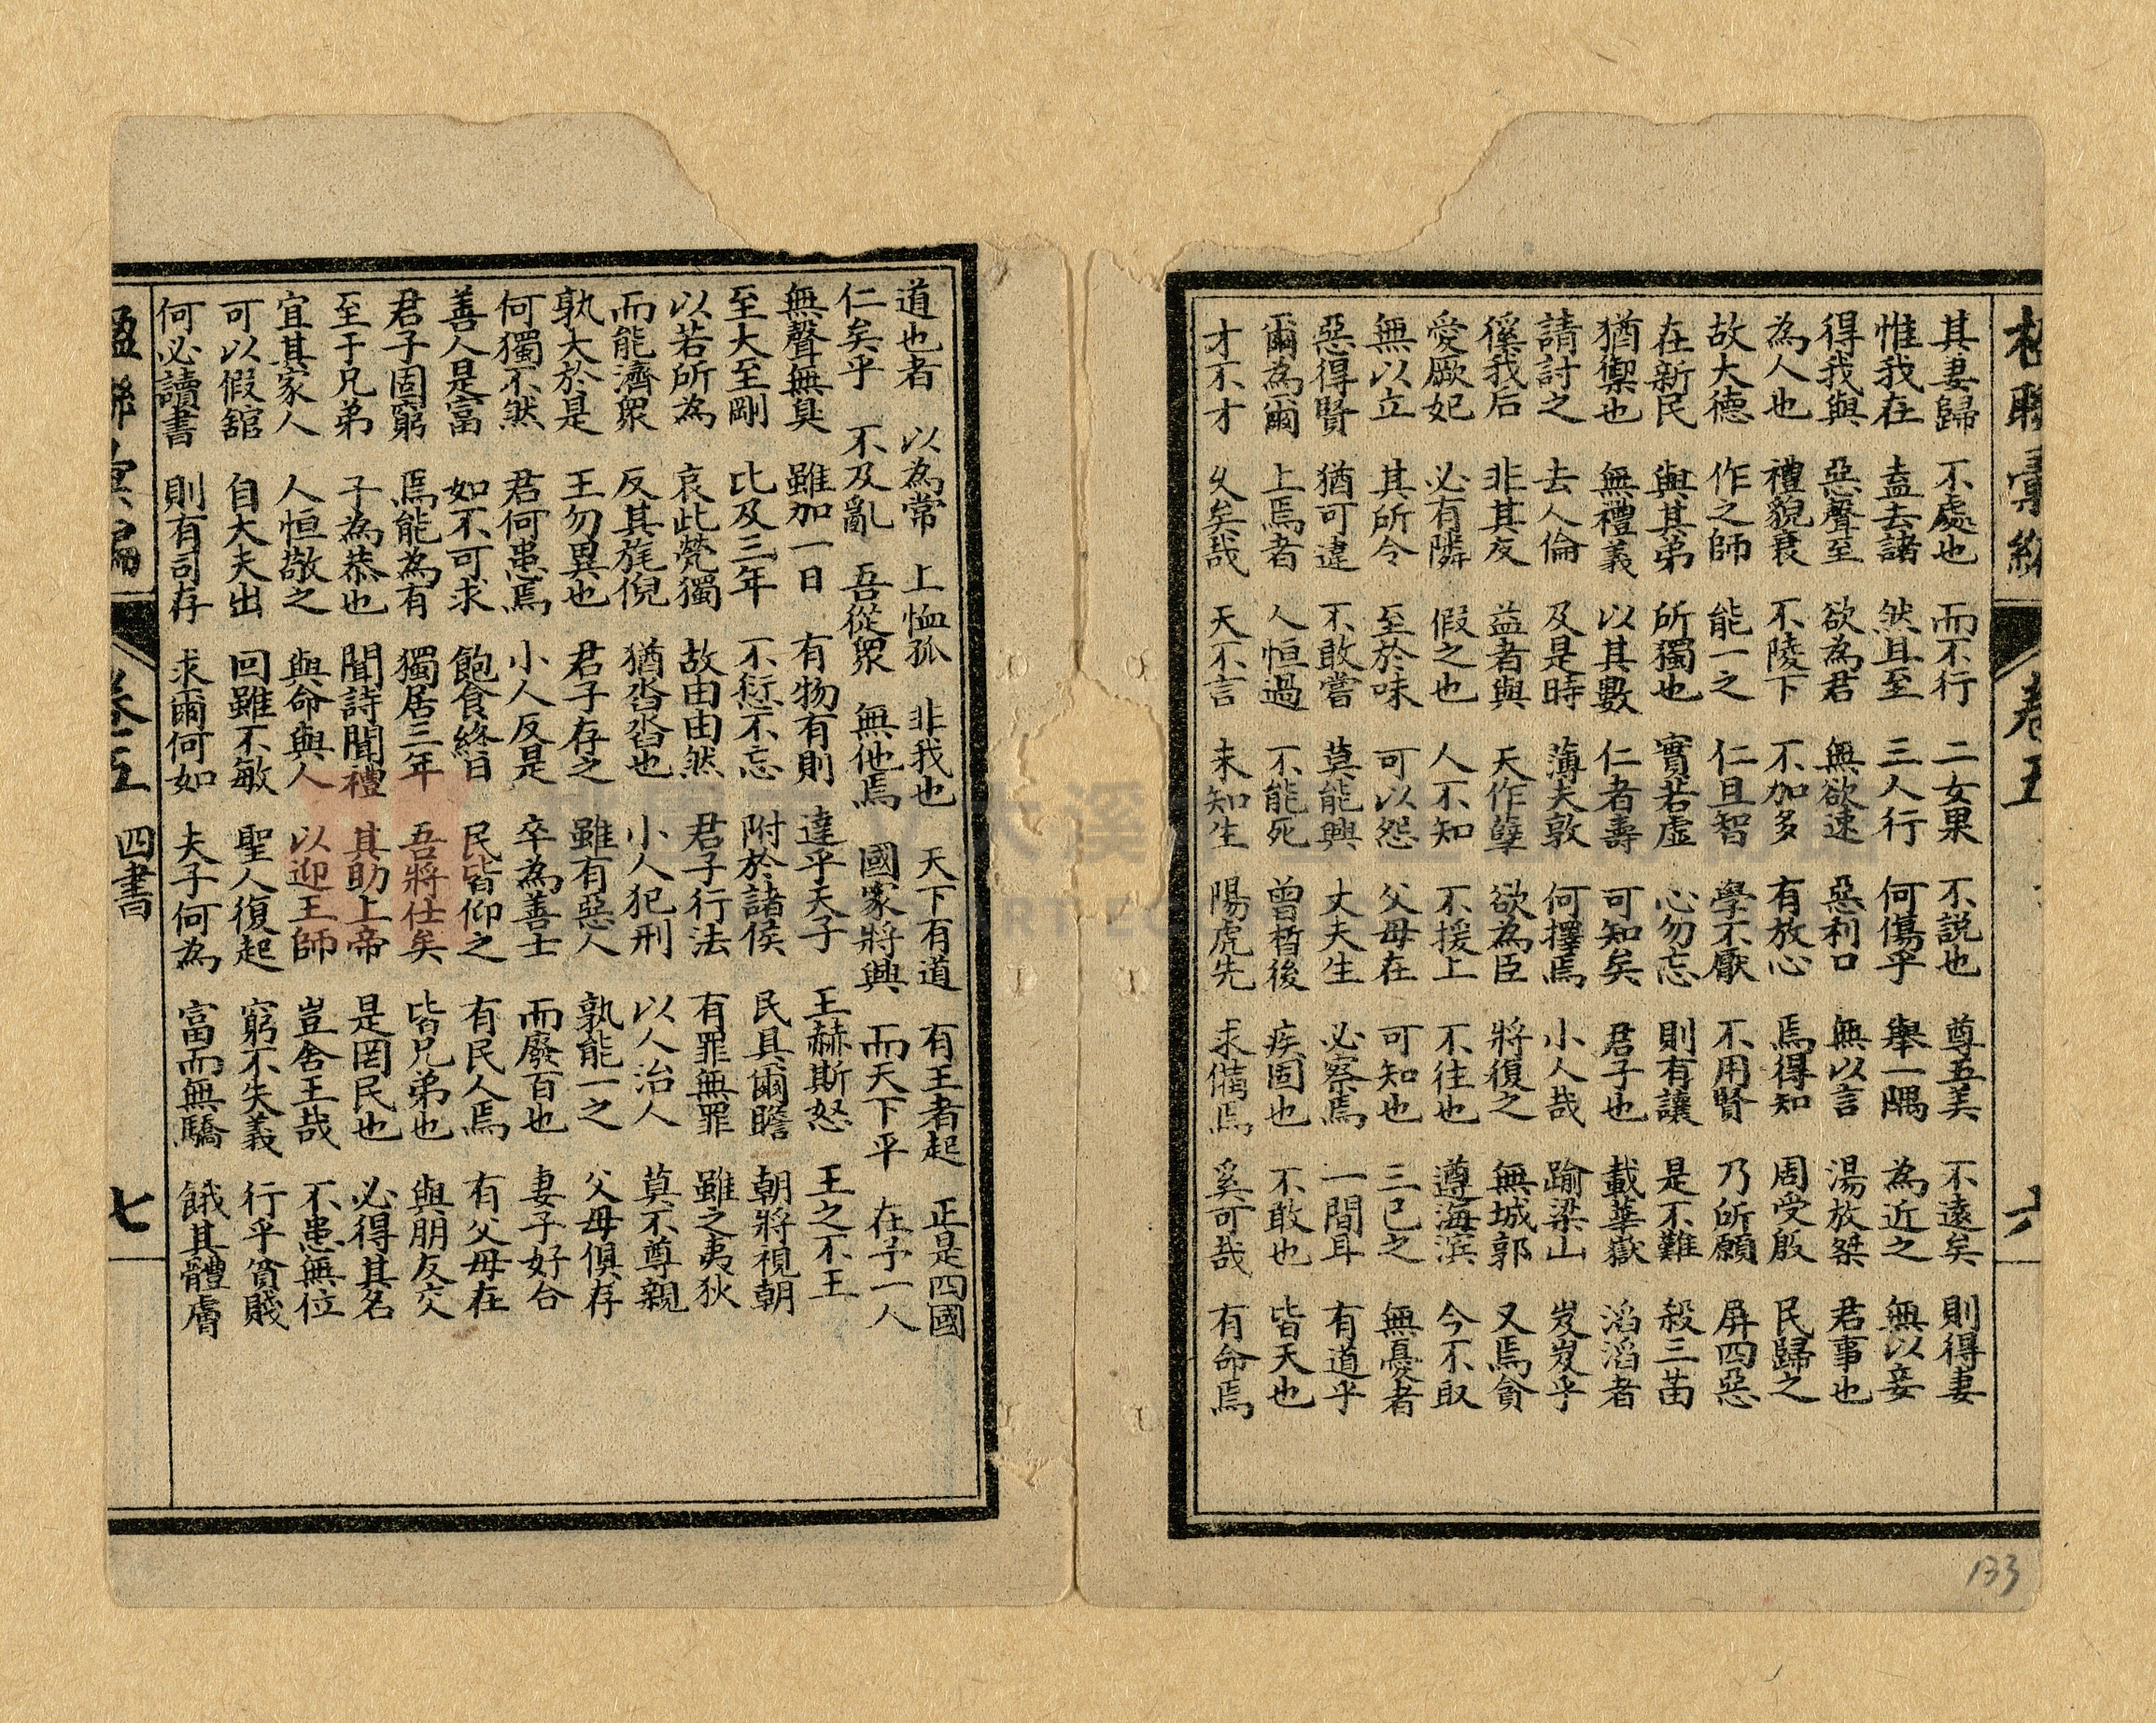 卷五
六
其妻歸 不處也 而不行 二女果 不説也 尊五美 不遠矣 則得妻
惟我在 盍去諸 然且至 三人行 何傷乎 舉一隅 為近之 無以妾
得我與 惡聲至 欲為君 無欲速 惡利口 無以言 湯放桀 君事也
為人也 禮貌衰 不陵下 不加多 有放心 焉得知 周受殷 民歸之
故大德 作之師 能一之 仁且智 學不厭 不用賢 乃所願 屏四惡
在新民 與其弟 所獨也 實若虛 心勿忘 則有讓 是不難 殺三苗
猶禦也 無禮義 以其數 仁者壽 可知矣 君子也 載華嶽 滔滔者
請討之 去人倫 及是時 薄夫敦 何擇焉 小人哉 踰梁山 岌岌乎
徯我后 非其友 益者與 天作孽 欲為臣 將復之 無城郭 又焉貪
愛厥妃 必有隣 假之也 人不知 不援上 不往也 遵海濱 今不取
無以立 其所令 至於味 可以怨 父母在 可知也 三已之 無憂者
惡得賢 猶可違 不敢嘗 莫能興 丈夫生 必察焉 一間耳 有道乎
爾為爾 上焉者 人恒過 不能死 曾晳後 疾固也 不敢也 皆天也
才不才 久矣哉 天不言 未知生 陽虎先 求備焉 奚可哉 有命焉
道也者 以為常 上恤孤 非我也 天下有道 有王者起 正是四國
仁矣乎 不及亂 吾從眾 無他焉 國家將興 而天下平 在予一人
無聲無臭 雖加一日 有物有則 達乎天子 王赫斯怒 王之不王
至大至剛 比及三年 不愆不忘 附於諸侯 民具爾瞻 朝將視朝
以若所為 哀此煢獨 故由由然 君子行法 有罪無罪 雖之夷狄
而能濟眾 反其旄倪 猶沓沓也 小人犯刑 以人治人 莫不尊親
孰大於是 王勿異也 君子存之 雖有惡人 孰能一之 父母俱存
何獨不然 君何患焉 小人反是 卒為善士 而廢百也 妻子好合
善人是富 如不可求 飽食終日 民皆仰之 有民人焉 有父母在
君子固窮 焉能為有 獨居三年 吾將仕矣 皆兄弟也 與朋友交
至于兄弟 子為恭也 聞詩聞禮 其助上帝 是罔民也 必得其名
宜其家人 人恒敬之 與命與人 以迎王師 豈舍王哉 不患無位
可以假舘 自大夫出 回雖不敏 聖人復起 窮不失義 行乎貧賤
何必讀書 則有司存 求爾何如 夫子何為 富而無驕 餓其體膚
楹聯彙編
卷五
四書
七
133